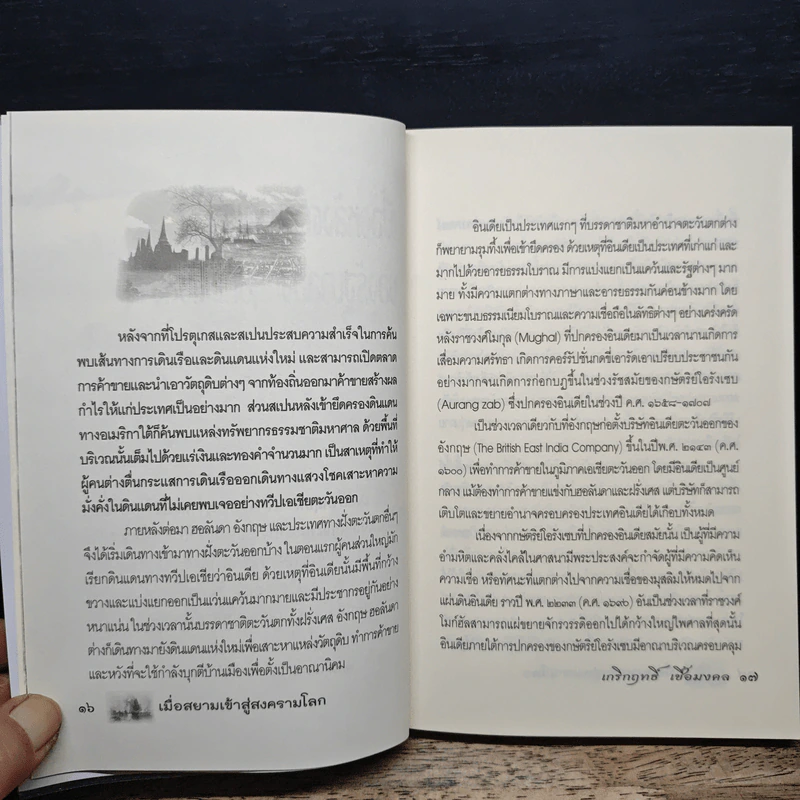 หลังจากที่โปรตุเกสและสเปนประสบความสำเร็จในการค้น
พบเส้นทางการเดินเรือและดินแดนแห่งใหม่ และสามารถเปิดตลาด
การค้าขายและนำเอาวัตถุดิบต่างๆ จากท้องถิ่นออกมาค้าขายสร้างผล
กำไรให้แก่ประเทศเป็นอย่างมาก ส่วนสเปนหลังเข้ายึดครองดินแดน
ทางอเมริกาใต้ก็ค้นพบแหล่งทรัพยากรธรรมชาติมหาศาล ด้วยพื้นที่
บริเวณนั้นเต็มไปด้วยแร่เงินและทองคำจำนวนมาก เป็นสาเหตุที่ทำให้
ผู้คนต่างตื่นกระแสการเดินเรือออกเดินทางแสวงโชคเสาะหาความ
มั่งคั่งในดินแดนที่ไม่เคยพบเจออย่างทวีปเอเชียตะวันออก
ภายหลังต่อมา ฮอลันดา อังกฤษ และประเทศทางฝั่งตะวันตกอื่นๆ
จึงได้เริ่มเดินทางเข้ามาทางฝั่งตะวันออกบ้าง ในตอนแรกผู้คนส่วนใหญ่มัก
เรียกดินแดนทางทวีปเอเชียว่าอินเดีย ด้วยเหตุที่อินเดียนั้นมีพื้นที่กว้าง
ขวางและแบ่งแยกออกเป็นแว่นแคว้นมากมายและมีประชากรอยู่กันอย่าง
หนาแน่น ในช่วงเวลานั้นบรรดาชาติตะวันตกทั้งฝรั่งเศส อังกฤษ ฮอลันดา
ต่างก็เดินทางมายังดินแดนแห่งใหม่เพื่อเสาะหาแหล่งวัตถุดิบ ทำการค้าขาย
และหวังที่จะใช้กำลังบุกตีบ้านเมืองเพื่อตั้งเป็นอาณานิคม
๑๖ เมื่อสยามเข้าสู่สงครามโลก
อินเดียเป็นประเทศแรกๆ ที่บรรดาชาติมหาอำนาจตะวันตกต่าง
ก็พยายามรุมทึ้งเพื่อเข้ายึดครอง ด้วยเหตุที่อินเดียเป็นประเทศที่เก่าแก่ และ
มากไปด้วยอารยธรรมโบราณ มีการแบ่งแยกเป็นแคว้นและรัฐต่างๆ มาก
มาย ทั้งมีความแตกต่างทางภาษาและอารยธรรมกันค่อนข้างมาก โดย
เฉพาะขนบธรรมเนียมโบราณและความเชื่อถือในลัทธิต่างๆ อย่างเคร่งครัด
หลังราชวงศ์โมกุล (Mughal) ที่ปกครองอินเดียมาเป็นเวลานานเกิดการ
เสื่อมความศรัทธา เกิดการคอร์รัปชั่นกดขี่เอารัดเอาเปรียบประชาชนกัน
อย่างมากจนเกิดการก่อกบฏขึ้นในช่วงรัชสมัยของกษัตริย์โอรังเซบ
(Aurang zab) ซึ่งปกครองอินเดียในช่วงปี ค.ศ. ๑๖๕๘-๑๗๐๗
เป็นช่วงเวลาเดียวกับที่อังกฤษก่อตั้งบริษัทอินเดียตะวันออกของ
อังกฤษ (The British East India Company) ขึ้นในปีพ.ศ. ๒๑๔๓ (ค.ศ.
๑๖๐๐) เพื่อทำการค้าขายในภูมิภาคเอเชียตะวันออก โดยมีอินเดียเป็นศูนย์
กลาง แม้ต้องทำการค้าขายแข่งกับฮอลันดาและฝรั่งเศส แต่บริษัทก็สามารถ
เติบโตและขยายอำนาจครอบครองประเทศอินเดียได้เกือบทั้งหมด
เนื่องจากกษัตริย์โอรังเซบที่ปกครองอินเดียสมัยนั้น เป็นผู้ที่มีความ
อำมหิตและคลั่งไคล้ในศาสนามีพระประสงค์จะกำจัดผู้ที่มีความคิดเห็น
ความเชื่อ หรือทัศนะที่แตกต่างไปจากความเชื่อของมุสลิมให้หมดไปจาก
แผ่นดินอินเดีย ราวปี พ.ศ. ๒๒๓๓ (ค.ศ. ๑๖๙๐) อันเป็นช่วงเวลาที่ราชวงศ์
โมกัฮัลสามารถแผ่ขยายจักรวรรดิออกไปได้กว้างใหญ่ไพศาลที่สุดนั้น
อินเดียภายใต้การปกครองของกษัตริย์โอรังเซบมีอาณาบริเวณครอบคลุม
เกริกฤทธิ์ เชื้อมงคล ๑๗